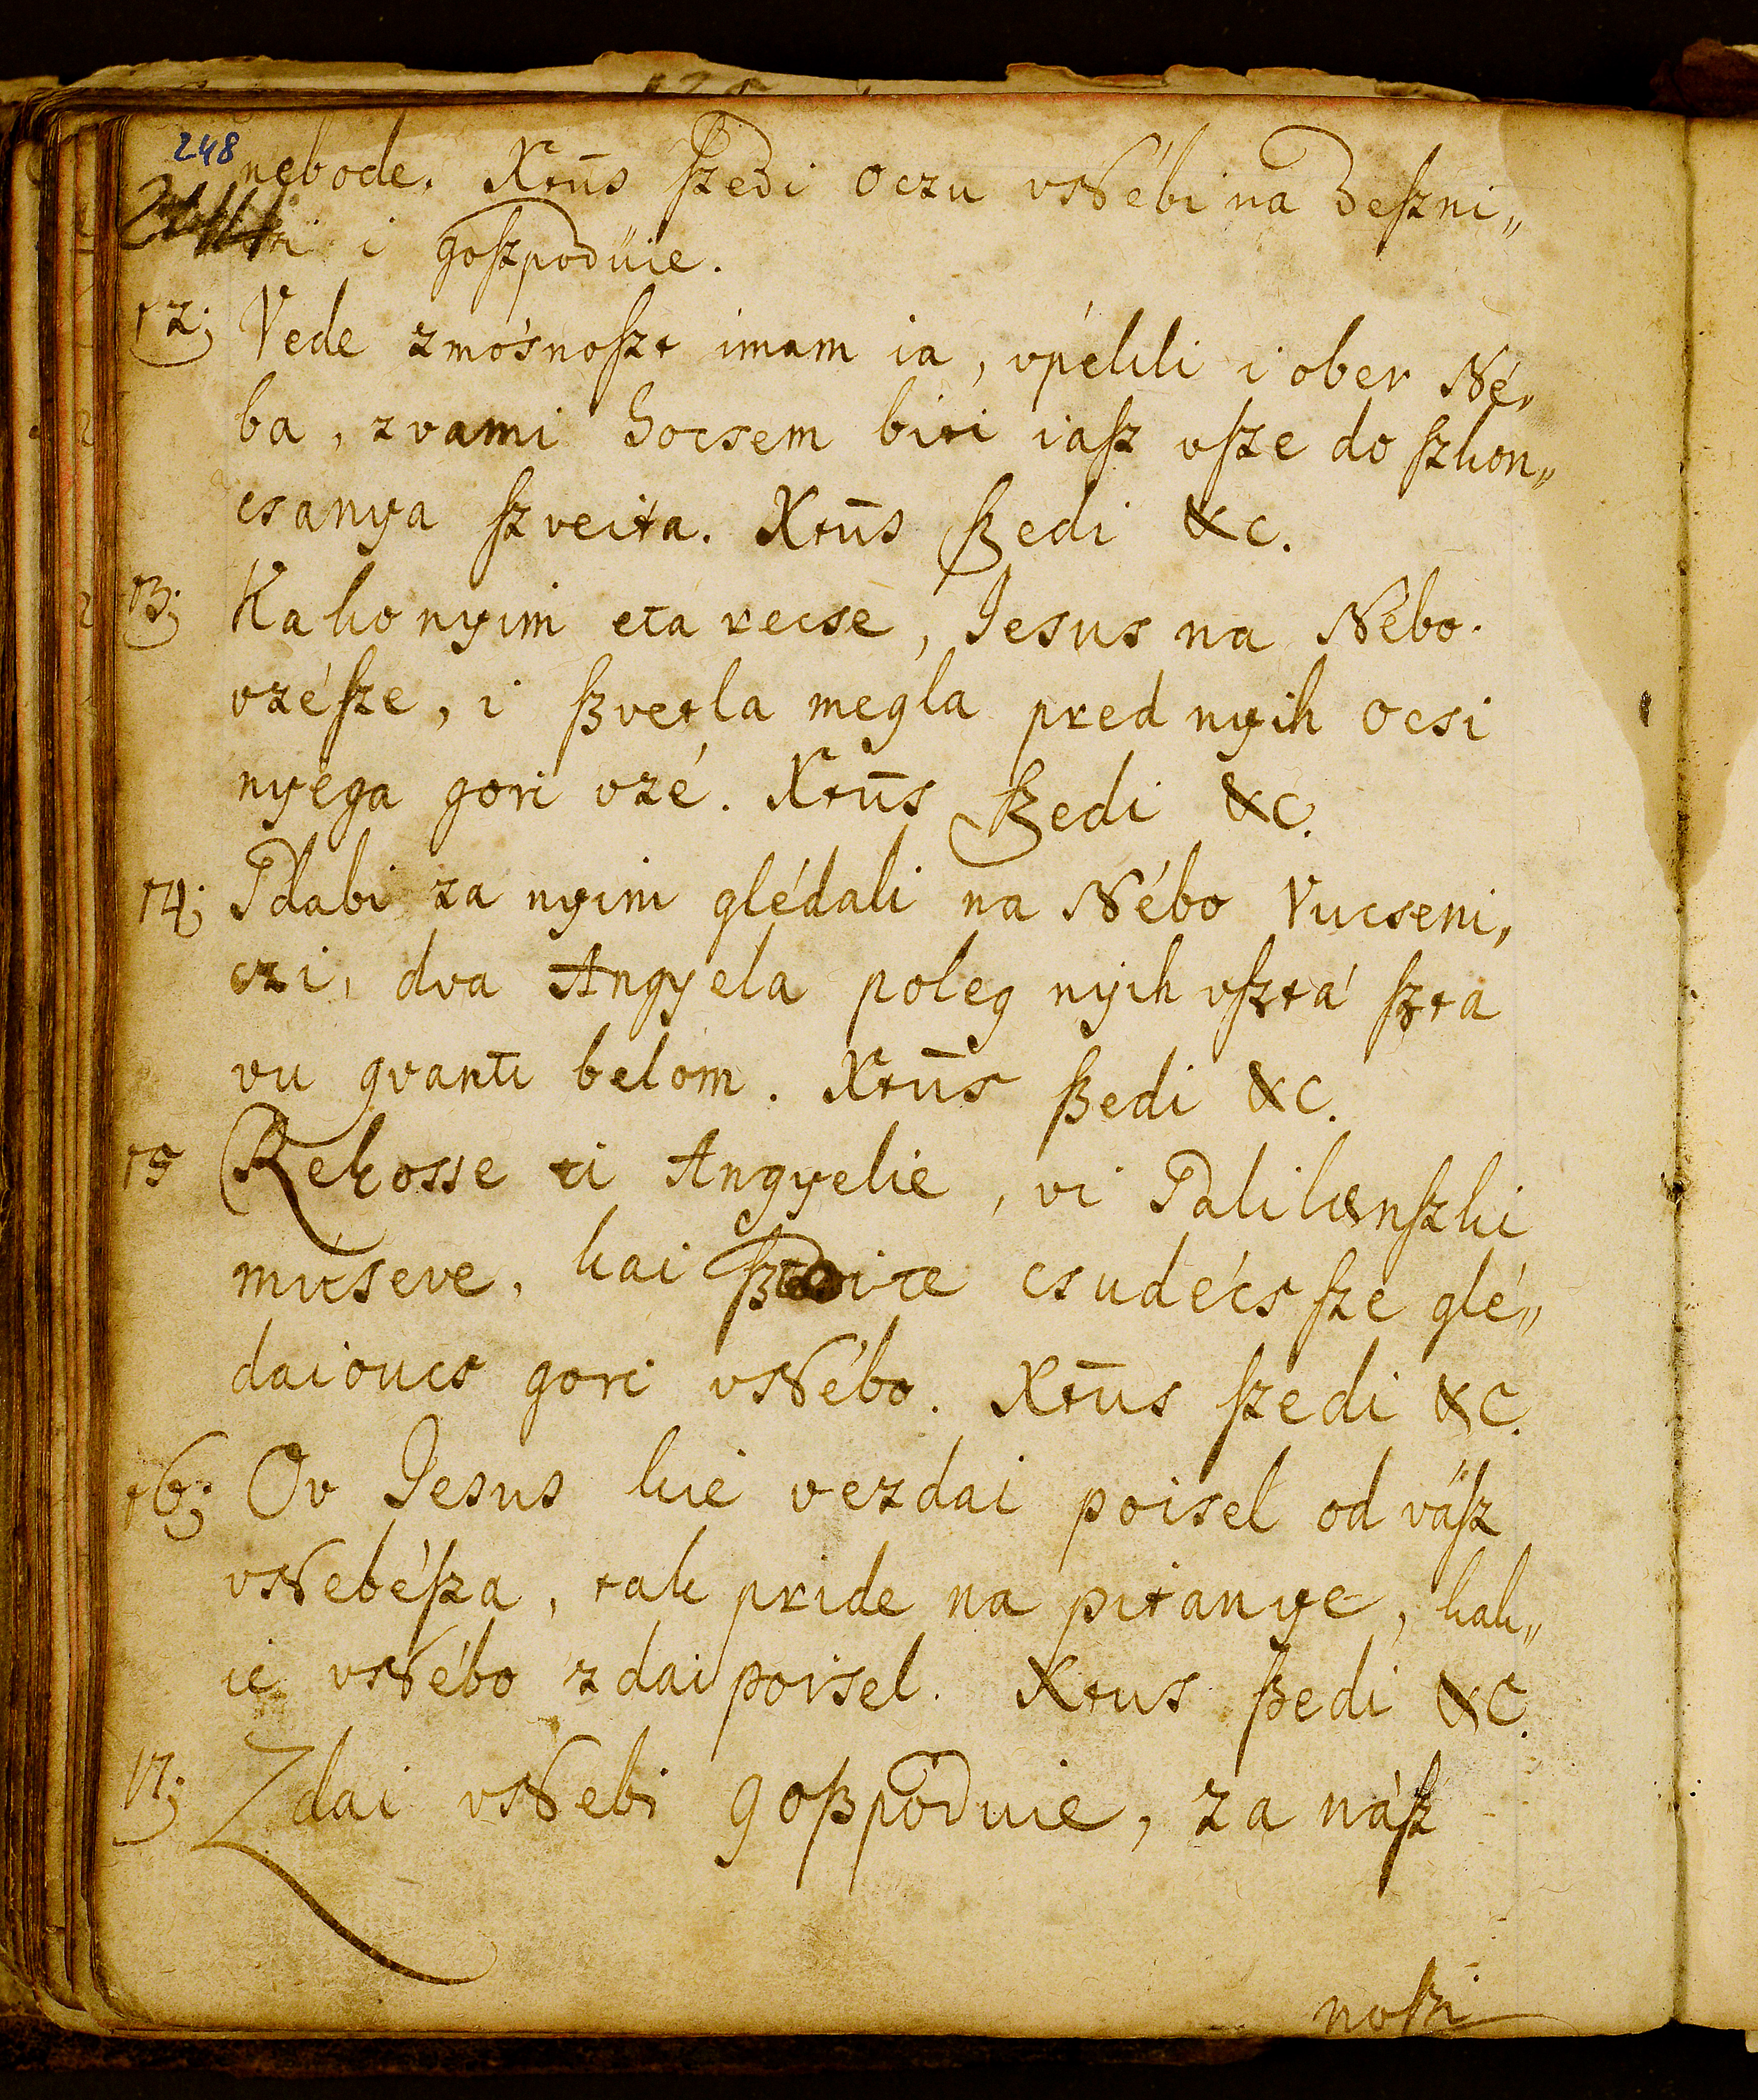 248
nebode. Xtūs ſzedi oczu vNébi na deſzni„
i goſzpodüie.
12; Vede zmósnoſzt imam ia, vpékli i ober Né„
ba, zvami hocsem biti iaſz vſze do ſzkon„
csanya ſzveita. Xtūs ſzedi &c.
13; Kako nyim eta recse, Jesus na Nébo
vzéſze, i ſzvetla megla pred nyih ocsi
nyéga gori vzé. Xtūs ſzedi &c.
14; Gdabi za nyim glédali na Nébo Vucseni„
czi, dva Angyela poleg nyih vſztá ſzta
vu gvanti belom. Xtūs ſzedi &c.
15 Rekosse ti Angyelie, vi Galilænſzki
múseve, kai csudécs ſze glé„
daioucs gori vNébo. Xtūs ſzedi &c.
16; Ov Jesus kié vezdai poisel od váſz
vNebéſza, tak pride na pitanye, kak„
ié vNébo zdai poisel. Xtus ſzedi &c.
17; Zdai vNebi goſzpoduie, za náſz
noſzi